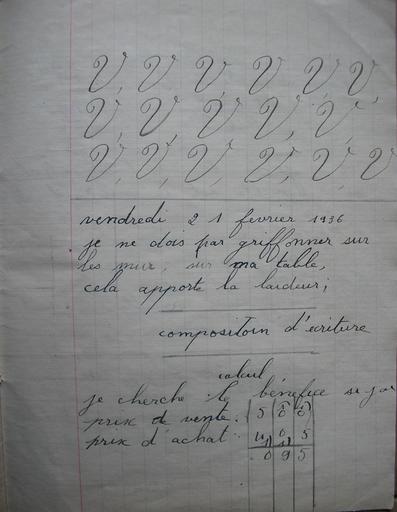 V, V V, V V, V,
V, V, V V, V,
V, V, V, V, V, V
vendredi 21 fevrier 1936
je ne dois par griffonner sur
les mur, sur ma table,
cela apporte la laideur;
compositoin d'écriture
calcul
je cherche le bénéfice si j'ai
prix de vente. 5 0 0
prix d'achat 4 0 5
0 9 5